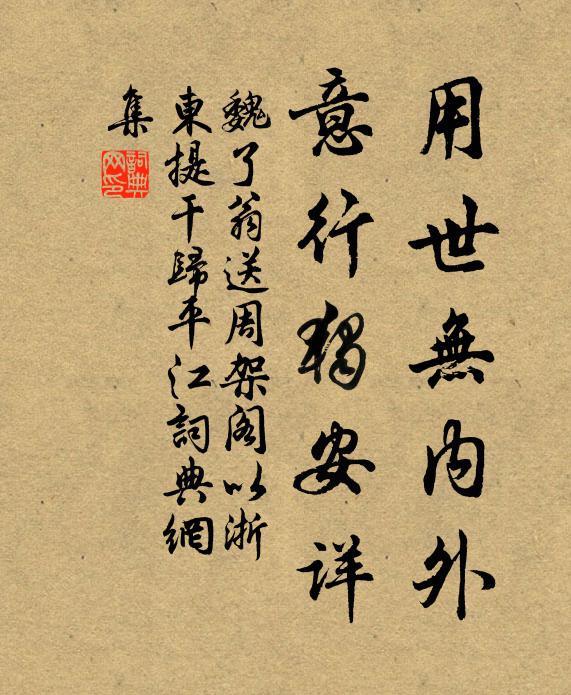 用世無内外
意行獨安詳
魏了翁送周架閣以浙
東提干歸平江詞典網
集
詞典
网印